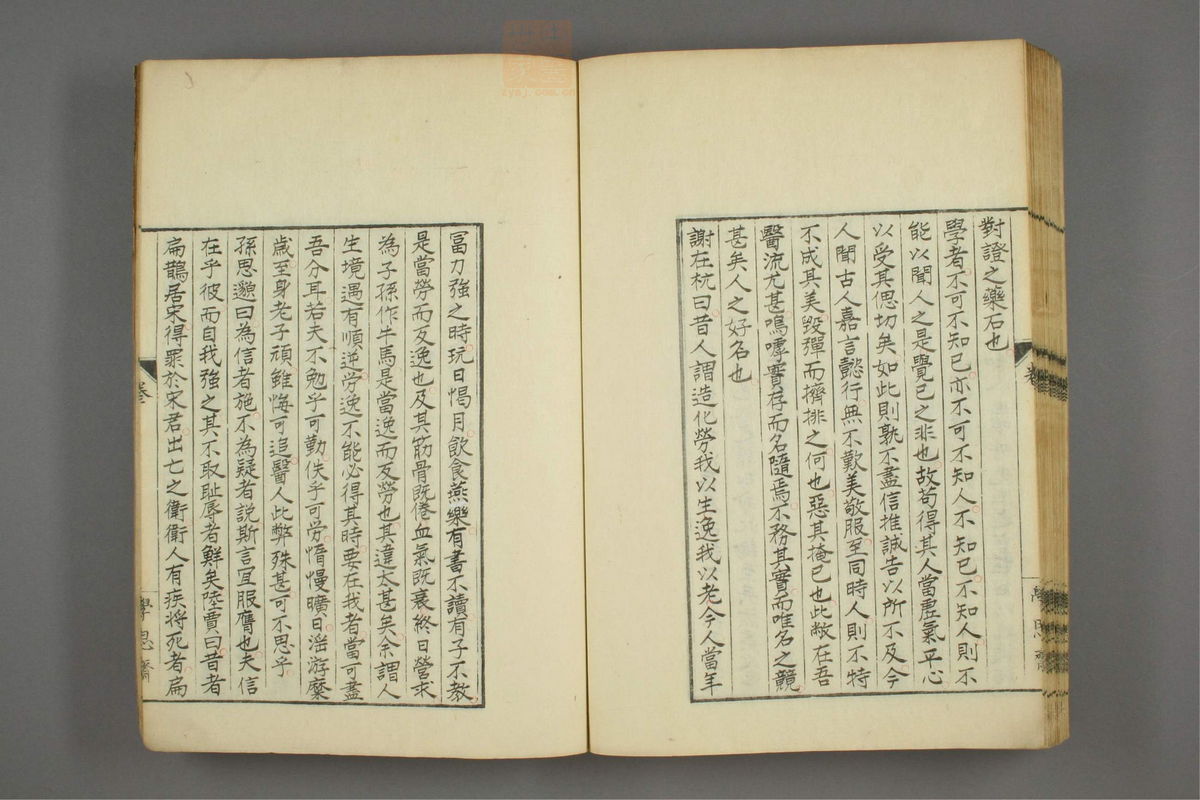 對證之藥石也
學者不可不知已亦不可不知人不知已不知人則不
能以聞人之是覺已之非也故苟得其人當虛氣平心
以受其偲切矣如此則孰不盡信推誠告以所不及今
人聞古人嘉言懿行無不歎美敬服至同時人則不特
不成其美毀彈而擠排之何也惡其掩已也此敝在吾
醫流尤甚嗚嘑實存而名隨焉不務其實而唯名之競
甚矣人之好名也
謝在杭曰昔人謂造化勞我以生逸我以老今人當年
富力強之時玩日愒月飲食燕樂有書不讀有子不教
是當勞而反逸也及其筋骨既倦血氣既衰終日營求
為子孫作牛馬是當逸而反勞也其違太甚矣余謂人
生境遇有順逆勞逸不能必得其時要在我者當可盡
吾分耳若夫不勉乎可勤佚乎可勞惰慢曠日滛游糜
歲至身老子頑雖悔可追醫人此弊殊甚可不思乎
孫思邈曰為信者施不為疑者說斯言宜服膺也夫信
在乎彼而自我強之其不取耻辱者鮮矣陸賈曰昔者
扁鵲居宋得罪於宋君出亡之衛衛人有疾将死者扁
卷
學思齋